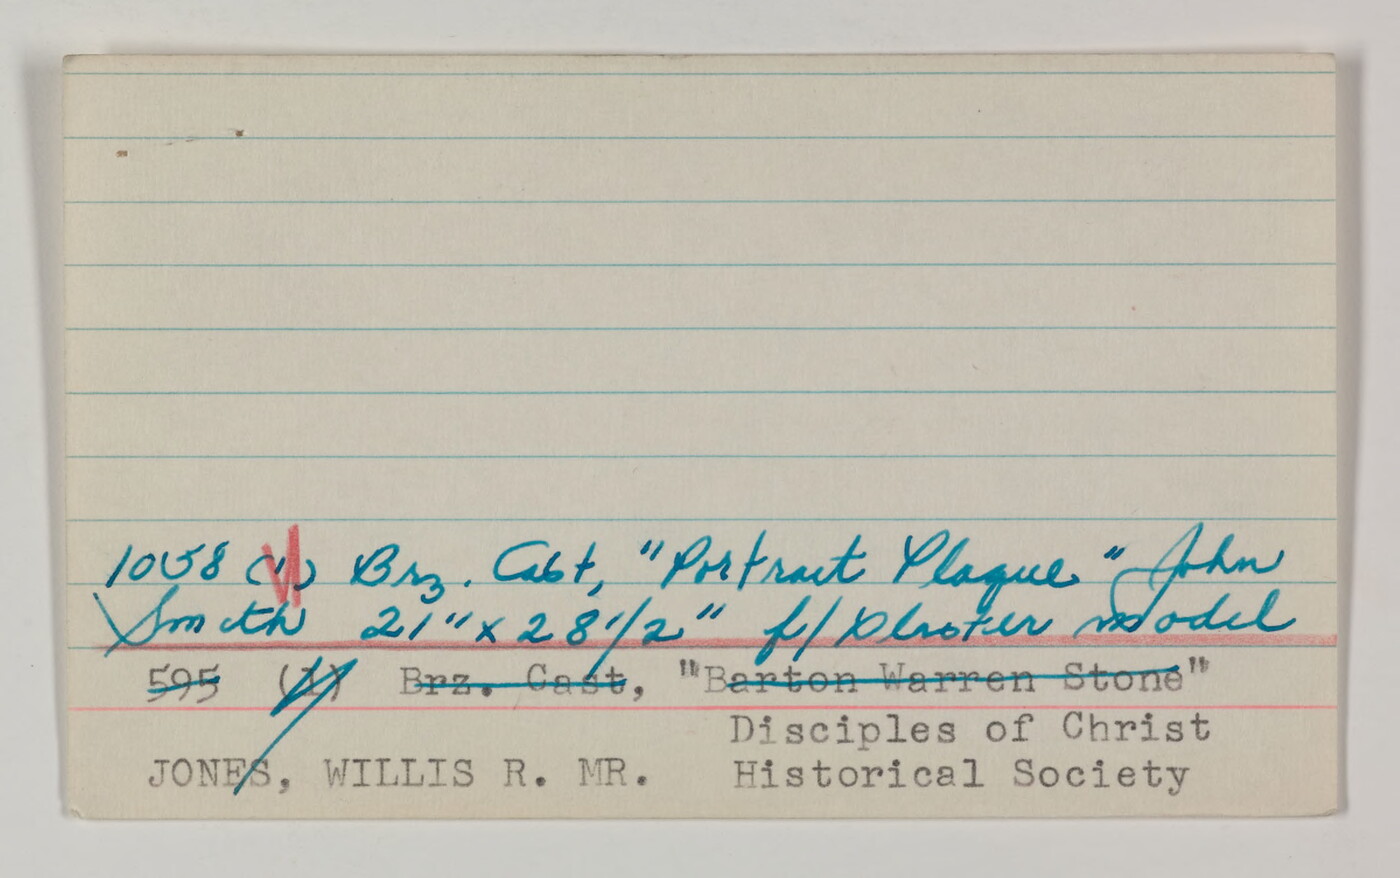 1058 (1) Brz. Cast, "Portrait Plaque" John
Smith 21" x 28 1/2" f/ plaster model
595 (1) Brz. Cast, "Barton Warren Stone"
Disciples of Christ
JONES, WILLIS R. MR. Historical Society